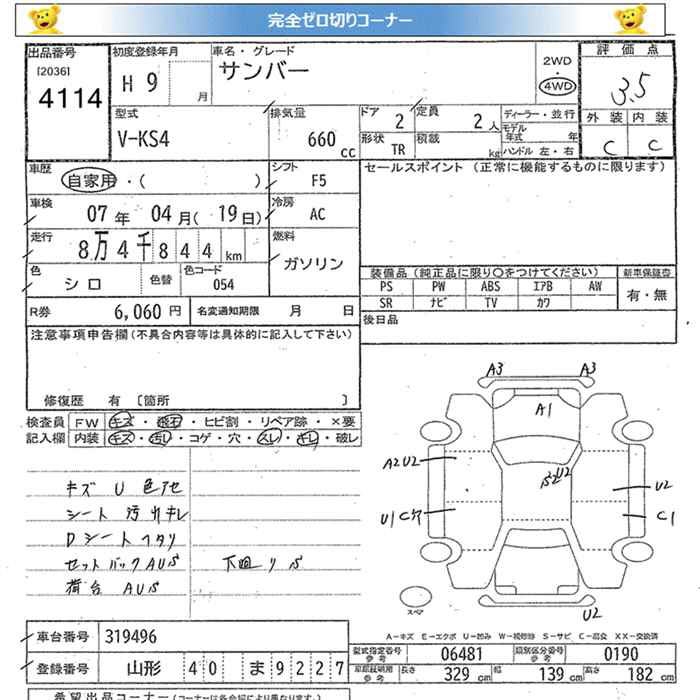 完全ゼロ切りコーナー
出品番号
[2036]
4114
初度登録年月
H 9
月
車名・グレード
サンバー
2WD
4WD
評価点
3.5
外装 内装
C C
型式
V-KS4
排気量
660 cc
ドア
2
定員
2 人
形状
TR
積載
kg
ディーラー・並行
モデル年式 年
ハンドル 左・右
車歴
自家用・( )
シフト
F5
車検
07 年 04 月( 19 日)
冷房
AC
走行
8万4千844 km
燃料
ガソリン
色
シロ
色替
色コード
054
R券 6,060 円
名変通知期限 月 日
セールスポイント (正常に機能するものに限ります)
装備品(純正品に限り〇をつけてください)
新車保証書
PS PW ABS エアB AW
SR ナビ TV カワ
有・無
後日品
注意事項申告欄(不具合内容等は具体的に記入して下さい)
修復歴 有 [箇所 ]
検査員記入欄
FW キズ・飛石・ヒビ割・リペア跡・×要
内装 キズ・汚れ・コゲ・穴・スレ・キレ・破レ
キズ U 色アセ
シート 汚れキレ
Dシートヘタリ
セットバックAUS
荷台 AUS
下廻りS
A3 A3
A1
A2U2
U2
U2
U1
C1
U2
スペア
A-キズ E-エクボ U-凹み W-補修跡 S-サビ C-腐食 XX-交換済
車台番号 319496
登録番号 山形 40 ま 9227
型式指定番号 参考 06481
類別区分番号 参考 0190
参考 長さ 329 cm 幅 139 cm 高さ 182 cm
希望出品コーナー